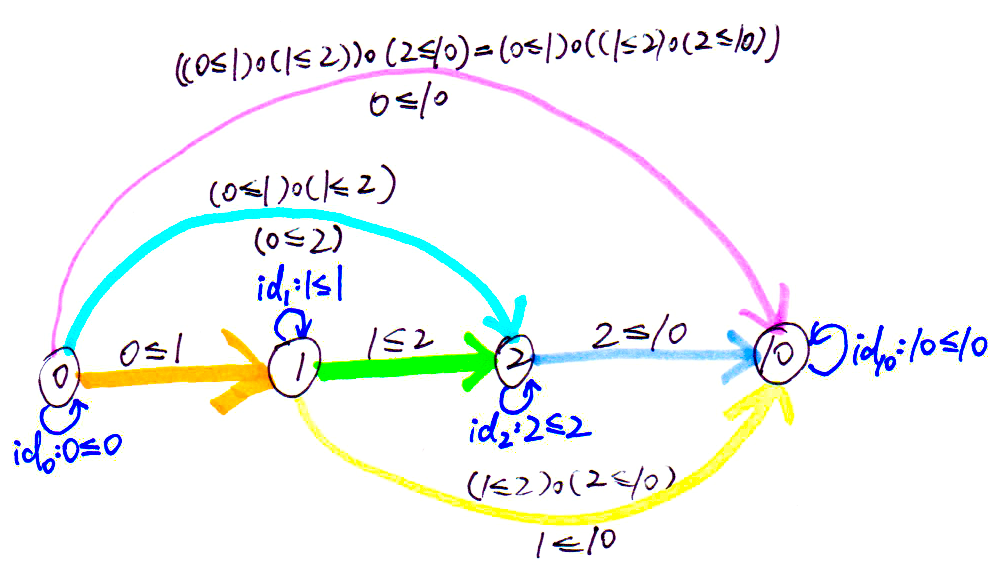 ((0≤1)∘(1≤2))∘(2≤10)=(0≤1)∘((1≤2)∘(2≤10))
0≤10
(0≤1)∘(1≤2)
(0≤2)
id₁:1≤1
0≤1
1≤2
2≤10
0
1
2
10
id₁₀:10≤10
id₀:0≤0
id₂:2≤2
(1≤2)∘(2≤10)
1≤10